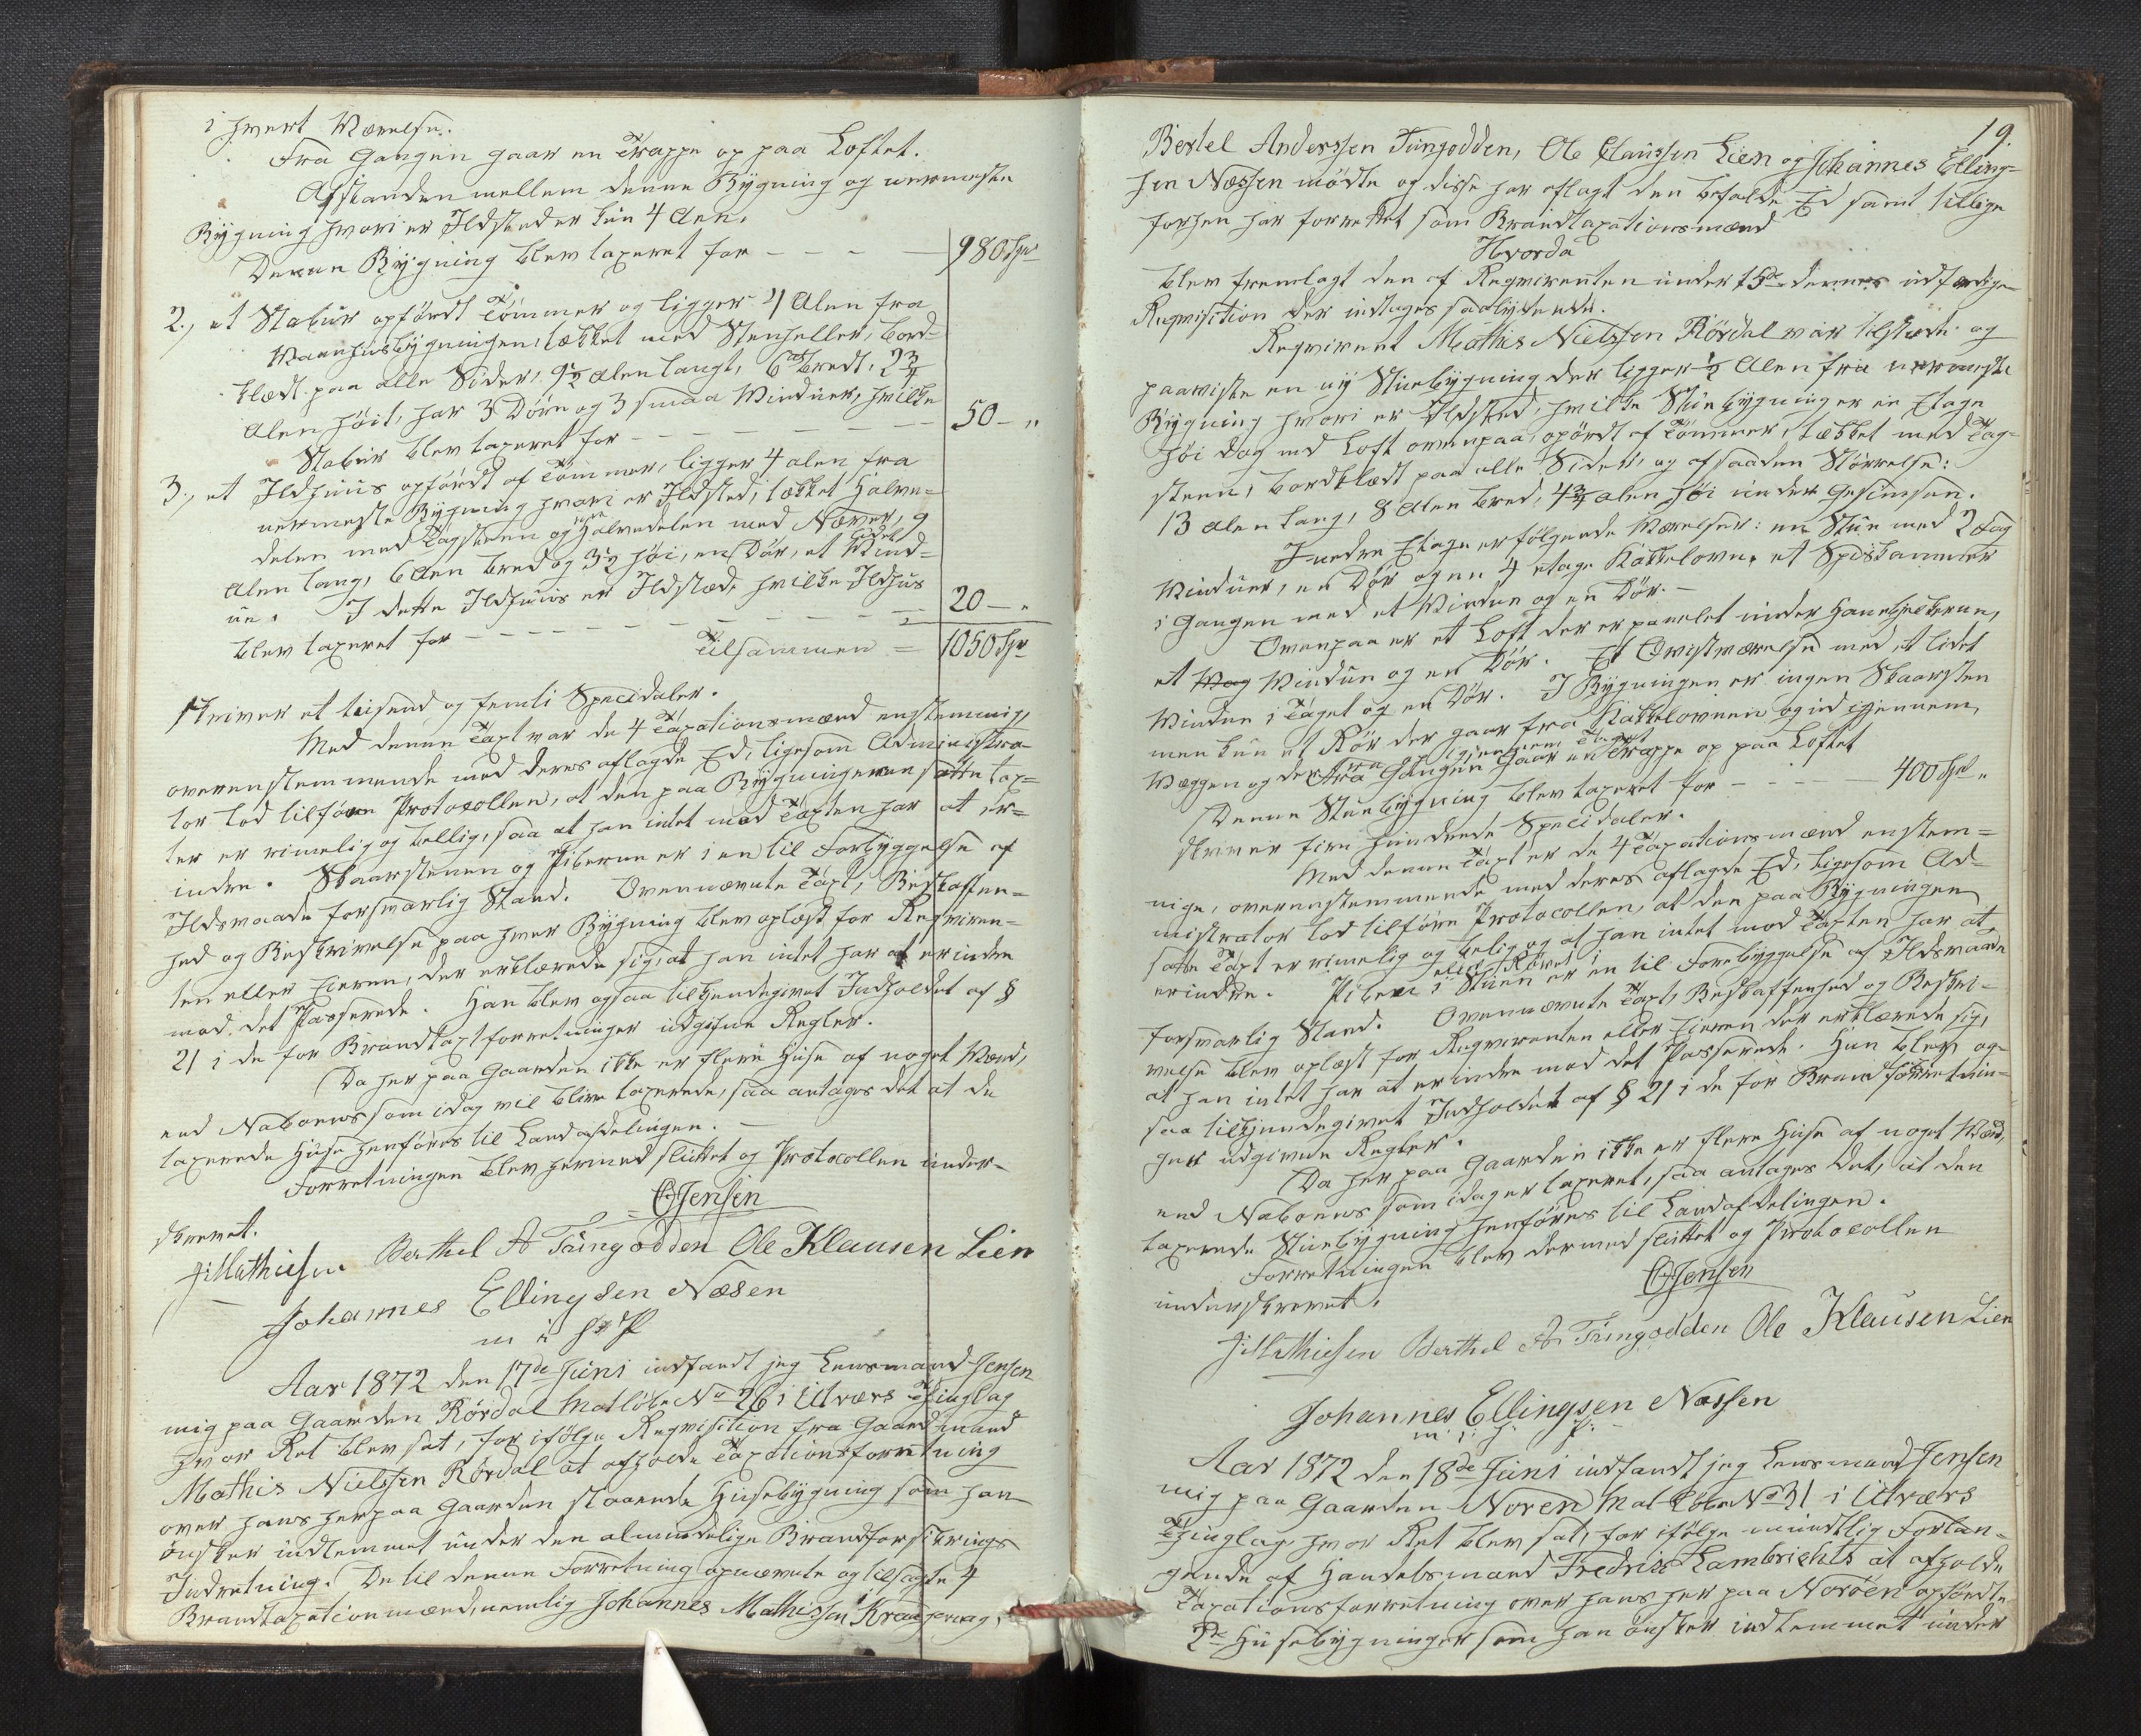 i hvert Værelse.
Fra Gangen gaar en Trappe op paa Loftet.
Afstanden mellem denne Bygning og nærmeste
Bygning hvori er Ildsteder kun 4 Alen.
Denne Bygning blev taxeret for - - - - 980 Spd
2., et Stabur opfördt Tömmer og ligger 4 Alen fra
Vaanhusbygningen, tækket med Stenheller, bord-
klædt paa alle Sider, 9½ Alen langt, 6 bredt, 2¾
Alen höit, har 3 Döre og 3 smaa Vinduer, hvilke
Stabur blev taxeret for - - - - - - - 50 - "
3., et Ildhuus opfördt af Tömmer, ligger 4 alen fra
nærmeste Bygning hvori er Ildsted, tækket Halve-
delen med Tagsteen og Halvedelen med Næver, 9
Alen lang, 6 Alen bred og 3½ höi, en Dör, et lidet Vind-
ue. I dette Ildhuus er Ildstæd, hvilke Ildhus
blev taxeret for - - - - - - - - 20 - "
Tilsammen = 1050 Spd
skriver et tusend og femti Specidaler.
Med denne Taxt var de 4 Taxationsmænd enstemmig,
overenstemmende med deres aflagde Ed, ligesom Administra-
tor lod tilføre Protocollen, at den paa Bygningerne satte Tax-
ter er rimelig og bellig, saa at han intet mod Taxten har at er-
indre. Skaarstenen og Piberne er i en til Forbyggelse af
Ildsvaade forsvarlig Stand. Ovennævnte Taxt, Beskaffen-
hed og Beskrivelse paa hver Bygning blev oplæst for Reqviren-
ten eller Eieren, der erklærede sig, at han intet har at erindre
mod det Passerede. Han blev ogsaa tilkjendegivet Indholdet af §
21 i de for Brandtaxtforretninger udgivne Regler.
Da her paa Gaarden ikke er flere Huse af noget Værd,
end Naboens som idag vil blive taxerede, saa antages det at de
taxerede Huse henföres til Landafdelingen. -
Forretningen blev hermed sluttet og Protocollen under-
skrevet.
O Jensen
J. Mathiesen Berthel A Tungodden Ole Klausen Lien
Johannes Ellingsen Næsen
m i h P
Aar 1872 den 17de Juni indfandt jeg Lensmand Jensen
mig paa Gaarden Rördal Mat löbe No 26 i Utværs Thinglag
hvor Ret blev sat, for ifölge Reqvisition fra Gaardmand
Mathis Nielssen Rördal at afholde Taxationsforretning
over hans her paa Gaarden staaende Husebygning som han
önsker indlemmet under den almindelige Brandforsikrings
Indretning. De til denne Forretning opnævnte og tilsagte 4
Brandtaxationsmænd, nemlig Johannes Mathissen Krangsvaag,
19.
Bertel Anderssen Tungodden, Ole Claussen Lien og Johannes Elling-
sen Næssen mödte og disse har aflagt den befalede Ed samt tillige
forhen har forrettet som Brandtaxationsmænd
Hvorda
blev fremlagt den af Reqvirenten under 15de dennes udfærdige
Reqvisition der indtages saalydende.
Reqvirent Mathis Nielssen Rördal var tilstede og
paaviste en ny Stuebygning der ligger ½ Alen fra nærmeste
Bygning hvori er Ildsted, hvilke Stuebygning er en Etage
höi dog med Loft ovenpaa, opfördt af Tömmer, tækket med Tag-
steen, bordklædt paa alle Sider, og af saaden Störrelse:
13 Alen lang, 8 Alen bred, 4¾ Alen höi under Gesimsen.
I nedre Etage er fölgende Værelser: en Stue med 2 Fag
Vinduer, en Dör og en 4 etage Kakkelovn, et Spiskammer
i Gangen med et Vindue og en Dör. -
Ovenpaa er et Loft der er panelet under Hanebjelkerne,
et Vindue og en Dör. Et Qvistværelse med et lidet
Vindue i Taget og en Dör. I Bygningen er ingen Skaarsten
men kun et Rör der gaar fra Kakkelovnen og ud igjennem
Væggen og der igjennem Taget fra Gangen gaar en Trappe op paa Loftet
Denne Stuebygning blev taxeret for - - - - 400 Spd "
skriver fire hundrede Specidaler.
Med denne Taxt er de 4 Taxationsmænd enstem-
mige, overenstemmende med deres aflagde Ed, ligesom Ad-
mistrator lod tilföre Protocollen, at den paa Bygningen
satte Taxt er rimelig og belig og at han intet mod Taxten har at
erindre. Piben eller Röret i Stuen er en til Forebyggelse af Ildsvaade
forsvarlig Stand. Ovennævnte Taxt, Beskaffenhed og Beskri-
velse blev oplæst for Reqvirenten eller Eieren der erklærede sig,
at han intet har at erindre mod det Passerede. Han blev og-
saa tilkjendegivet Indholdet af § 21 i de for Brandforretnin-
ger udgivne Regler.
Da her paa Gaarden ikke er flere Huse af noget Værd,
end Naboens som idag er taxeret, saa antages det, at den
taxerede Stuebygning henföres til Landafdelingen.
Forretningen blev dermed sluttet og Protocollen
underskrevet.
O Jensen
J. Mathiesen Berthel A Tungodden Ole Klausen Lien
Johannes Ellingsen Næssen
m. i. h. P.
Aar 1872 den 18de Juni indfandt jeg Lensmand Jensen
mig paa Gaarden Noren Mat Löbe No 31 i Utværs
Thinglag hvor Ret blev sat, for ifölge mundtlig Forlan-
gende af Handelsmand Fredrik Lambrichts at afholde
Taxationsforretning over hans her paa Noröen opfördte
2de Husebygninger som han önsker indlemmet under